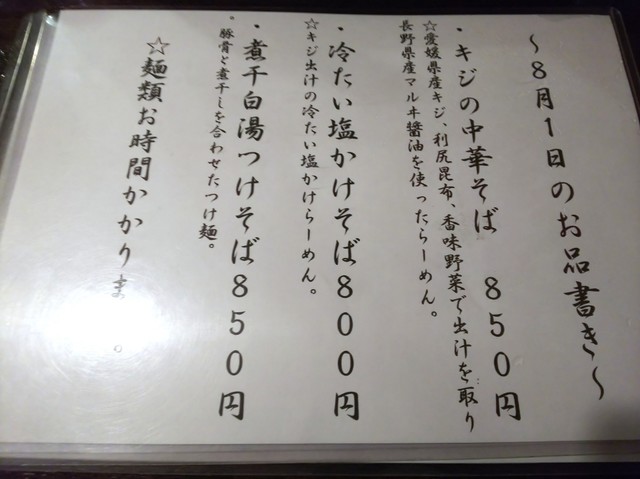 ～８月１日のお品書き～
・キジの中華そば　８５０円
☆愛媛県産キジ、利尻昆布、香味野菜で出汁を取り
長野県産マルヰ醤油を使ったらーめん。
・冷たい塩かけそば８００円
☆キジ出汁の冷たい塩かけらーめん。
・煮干白湯つけそば８５０円
。豚骨と煮干しを合わせたつけ麺。
☆麺類お時間かかりま 。